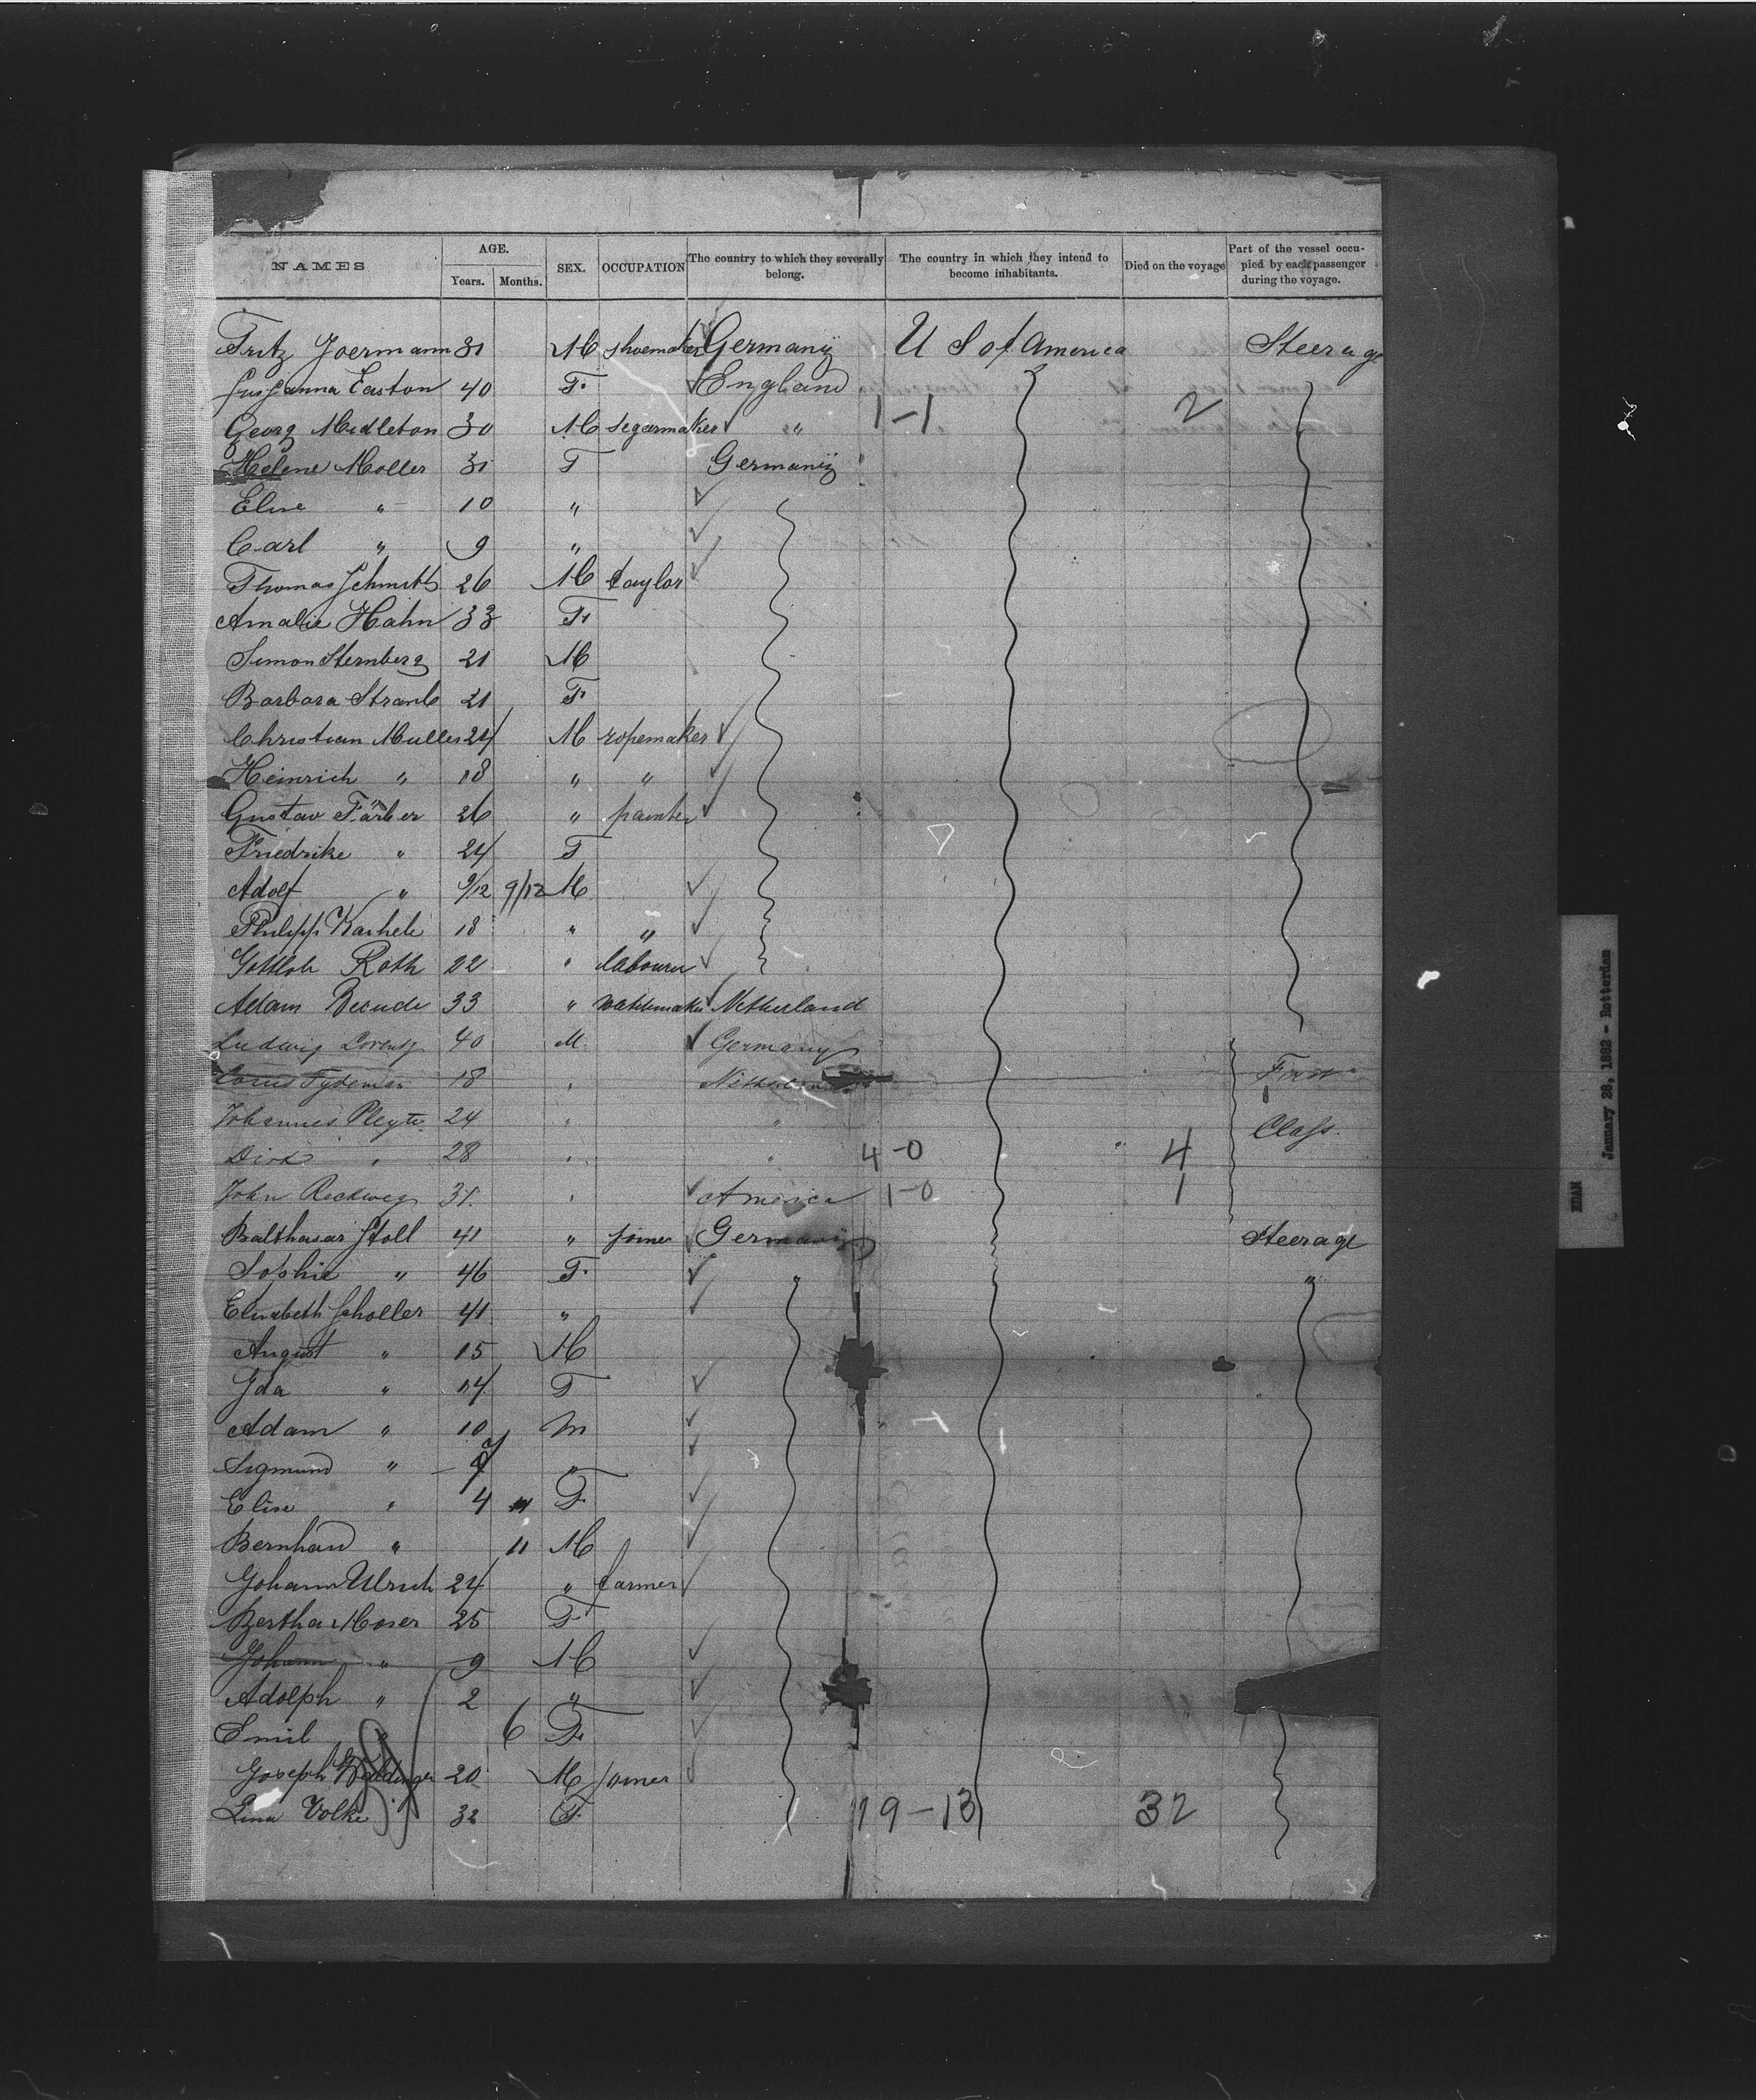 NAMES AGE. Years. Months. SEX. OCCUPATION The country to which they severally belong. The country in which they intend to become inhabitants. Died on the voyage Part of the vessel occupied by each passenger during the voyage.
Fritz Joermann 31 M shoemaker Germany U S of America Steerage
Susanna Easton 40 F. England
Georg Midleton 30 M segarmaker " 1-1 2
Helene Moller 31 F Germany
Elise " 10 "
Carl " 9 "
Thomas Schmitt 26 M taylor
Amalie Hahn 33 F.
Simon Sternberg 21 M
Barbara Straub 21 F
Christian Muller 24 M ropemaker
Heinrich " 18 " "
Gustav Färber 26 " painter
Friedrike " 24 F
Adolf " 9/12 9/12 M
Philipp 18 " "
Gottlob Roth 22 " labourer
Adam 33 " watchmaker Netherland
Ludwig Lorentz 40 M. Germany
Tydeman 18 " First
Johannes Pleyte 24 " " Class.
Dirk " 28 " " 4-0 4
John Reckweg 31. " America 1-0 1
Balthasar Stoll 41 " joiner Germany Steerage
Sophie " 46 F. " "
Elisabeth Scholler 41 "
August " 15 M
Ida " 14 F
Adam " 10 M
Sigmund " "
Elise " 4 F.
Bernhard " 11 M
Johann Ulrich 24 " farmer
Bertha Moser 25 F
Johann " 9 M
Adolph " 2 "
Emil " 6 F.
Joseph 20 M joiner
Lina Volke 32 F. 19-13 32
EDAM January 28, 1882 - Rotterdam